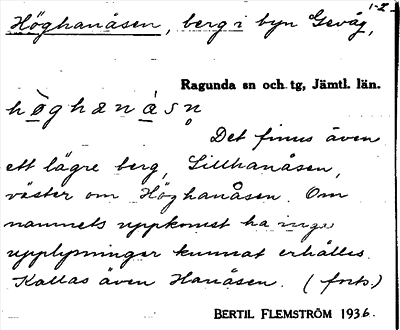 1-2
Höghanåsen, berg i byn Gevåg,
Ragunda sn och tg, Jämtl. län.
hö̀ghanå̀sn̥
Det finns även
ett lägre berg, Lillhanåsen,
väster om Höghanåsen. Om
namnets uppkomst ha inga
upplysningar kunnat erhållas.
Kallas även Hanåsen. (forts.)
BERTIL FLEMSTRÖM 1936.